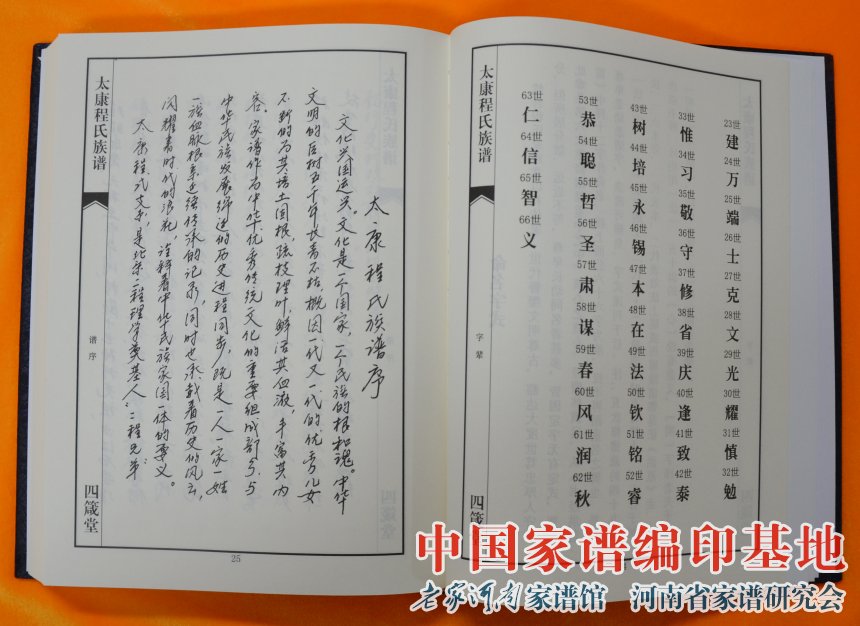 太康程氏族谱
谱序
四箴堂
太康程氏族谱序
文化兴国运兴。文化是一个国家，一个民族的根和魂。中华
文明的巨树五千年长青不枯，概因一代又一代的优秀儿女
不断的为其培土固根，疏枝理叶，鲜活其血液，丰富其内
容。家谱作为中华优秀传统文化的重要组成部分，与
中华民族发展绵进的历史进程同步，既是一人一家一姓
一族血脉根系延续传承的记录，同时也承载着历史的风云，
闪耀着时代的浪花，诠释着中华民族家国一体的要义。
太康程氏支系，是北宋"理学奠基人"二程兄弟
25
太康程氏族谱
字辈
四箴
23世 建 24世 万 25世 端 26世 士 27世 克 28世 文 29世 光 30世 耀 31世 慎 32世 勉
33世 惟 34世 习 35世 敬 36世 守 37世 修 38世 省 39世 庆 40世 逢 41世 致 42世 泰
43世 树 44世 培 45世 永 46世 锡 47世 本 48世 在 49世 法 50世 钦 51世 铭 52世 睿
53世 恭 54世 聪 55世 哲 56世 圣 57世 肃 58世 谋 59世 春 60世 风 61世 润 62世 秋
63世 仁 64世 信 65世 智 66世 义
中国家谱编印基地
老家河南家谱馆 河南省家谱研究会